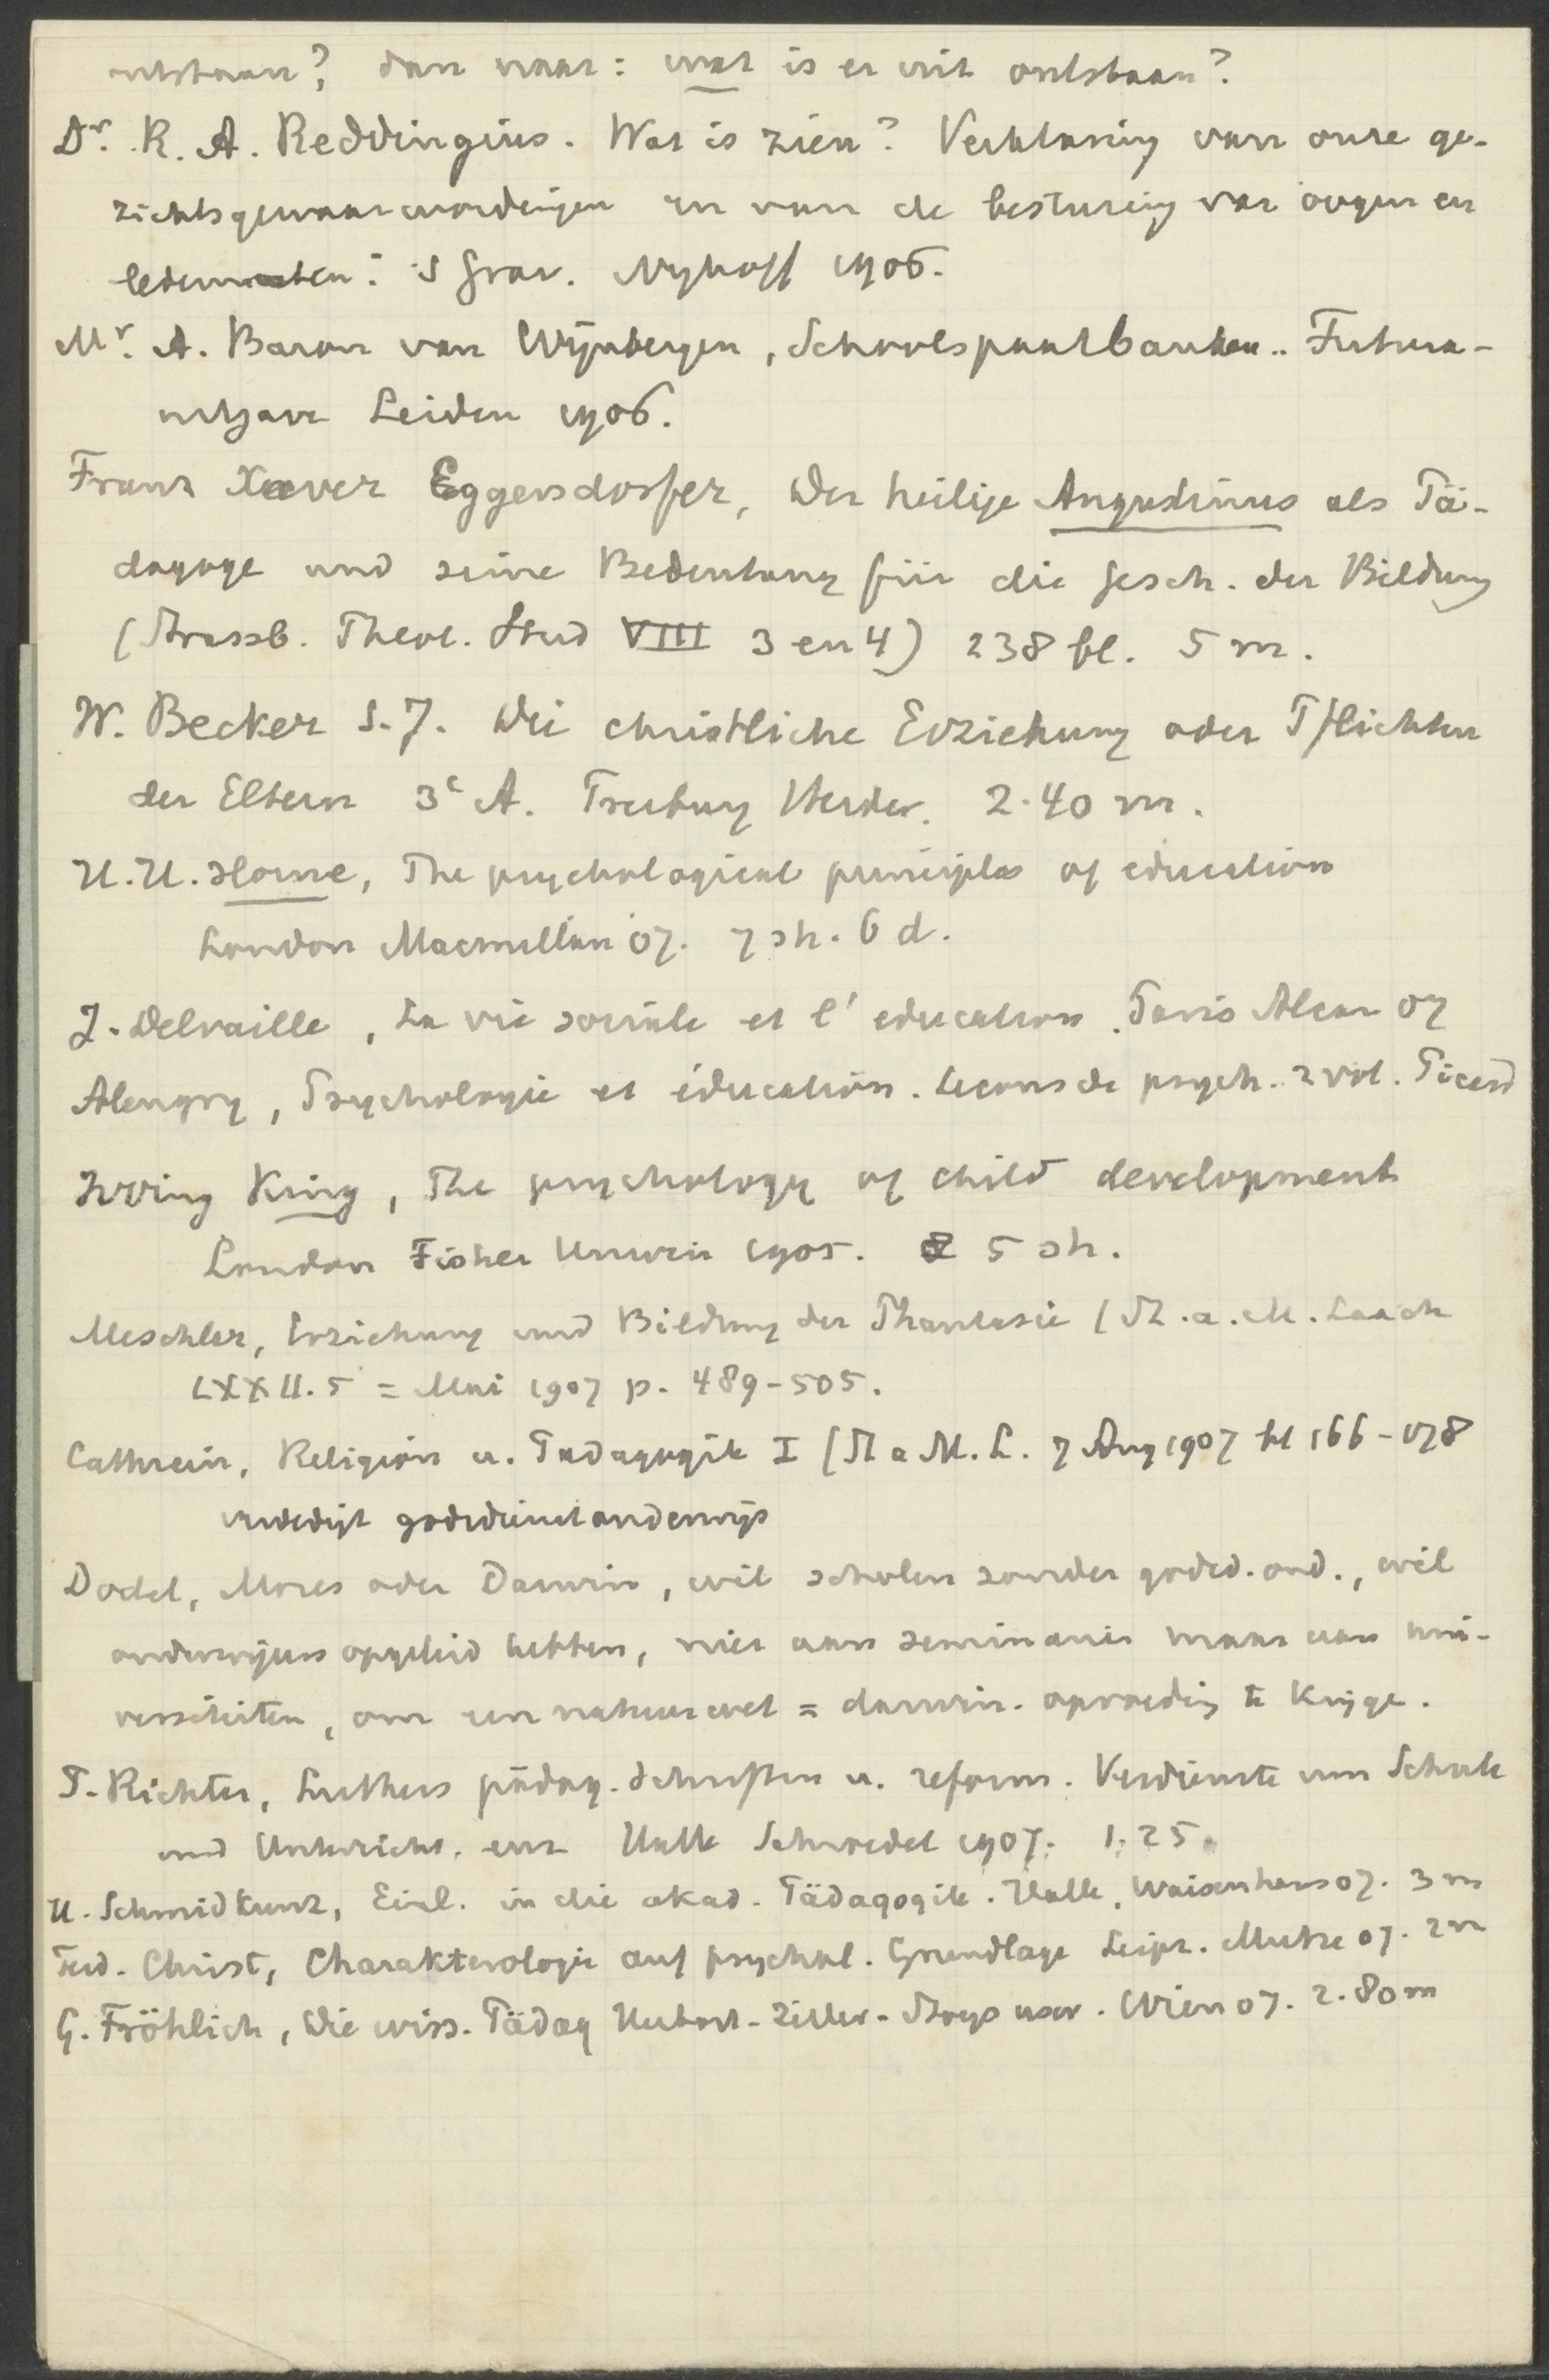 ontstaan?, dan naar: wat is er uit ontstaan?
Dr. R. A. Reddingius. Wat is zien? Verklaring van onze ge-
zichtsgewaarwordingen en van de besturing van oogen en
ledematen. 's Grav. Nyhoff 1906.
Mr. A. Baron van Wijnbergen, Schoolspaarbanken.. Futura-
uitgave Leiden 1906.
Franz Xaver Eggersdorfer, Der heilige Augustinus als Pä-
dagoge und seine Bedeutung für die Gesch. der Bildung
(Strassb. Theol. Stud VIII 3 en 4) 238 bl. 5 m.
W. Becker S.J. Die christliche Erziehung oder Pflichten
der Eltern 3e A. Freiburg Herder. 2.40 m.
H. H. Horne, The psychological principles of education
London Macmillan 07. 7 sh. 6 d.
J. Delvaille, La vie sociale et l'education. Paris Alcan 07
Alengry, Psychologie et éducation. Lecons de psych. 2 vol. Picard
Irving King, The psychology of child development
London Fisher Unwin 1905. 5 sh.
Meschler, Erziehung und Bildung der Phantasie (St. a. M. Laach
LXXII. 5 = Mai 1907 p. 489-505.
Cathrein, Religion u. Padagogik I (St a M. L. 7 Aug 1907 bl 166-178
verdedigt godsdienstonderwijs
Dodel, Moses oder Darwin, wil scholen zonder godsd. ond., wil
onderwijzers opgeleid hebben, niet aan seminaries maar aan uni-
versiteiten, om een natuurwet = darwin. opvoeding te krijge.
P. Richter, Luthers pädag. Schriften u. reform. Verdienste um Schule
und Unterricht. enz Halle Schroedel 1907. 1.25.
H. Schmidkunz, Einl. in die akad. Pädagogik. Halle, Waisenhaus 07. 3 m
Ferd. Christ, Charakterologie auf psychol. Grundlage Leipz. Mutze 07. 2 m
G. Fröhlich, Die wiss. Pädag Herbart-Ziller-Stoys usw. Wien 07. 2.80 m